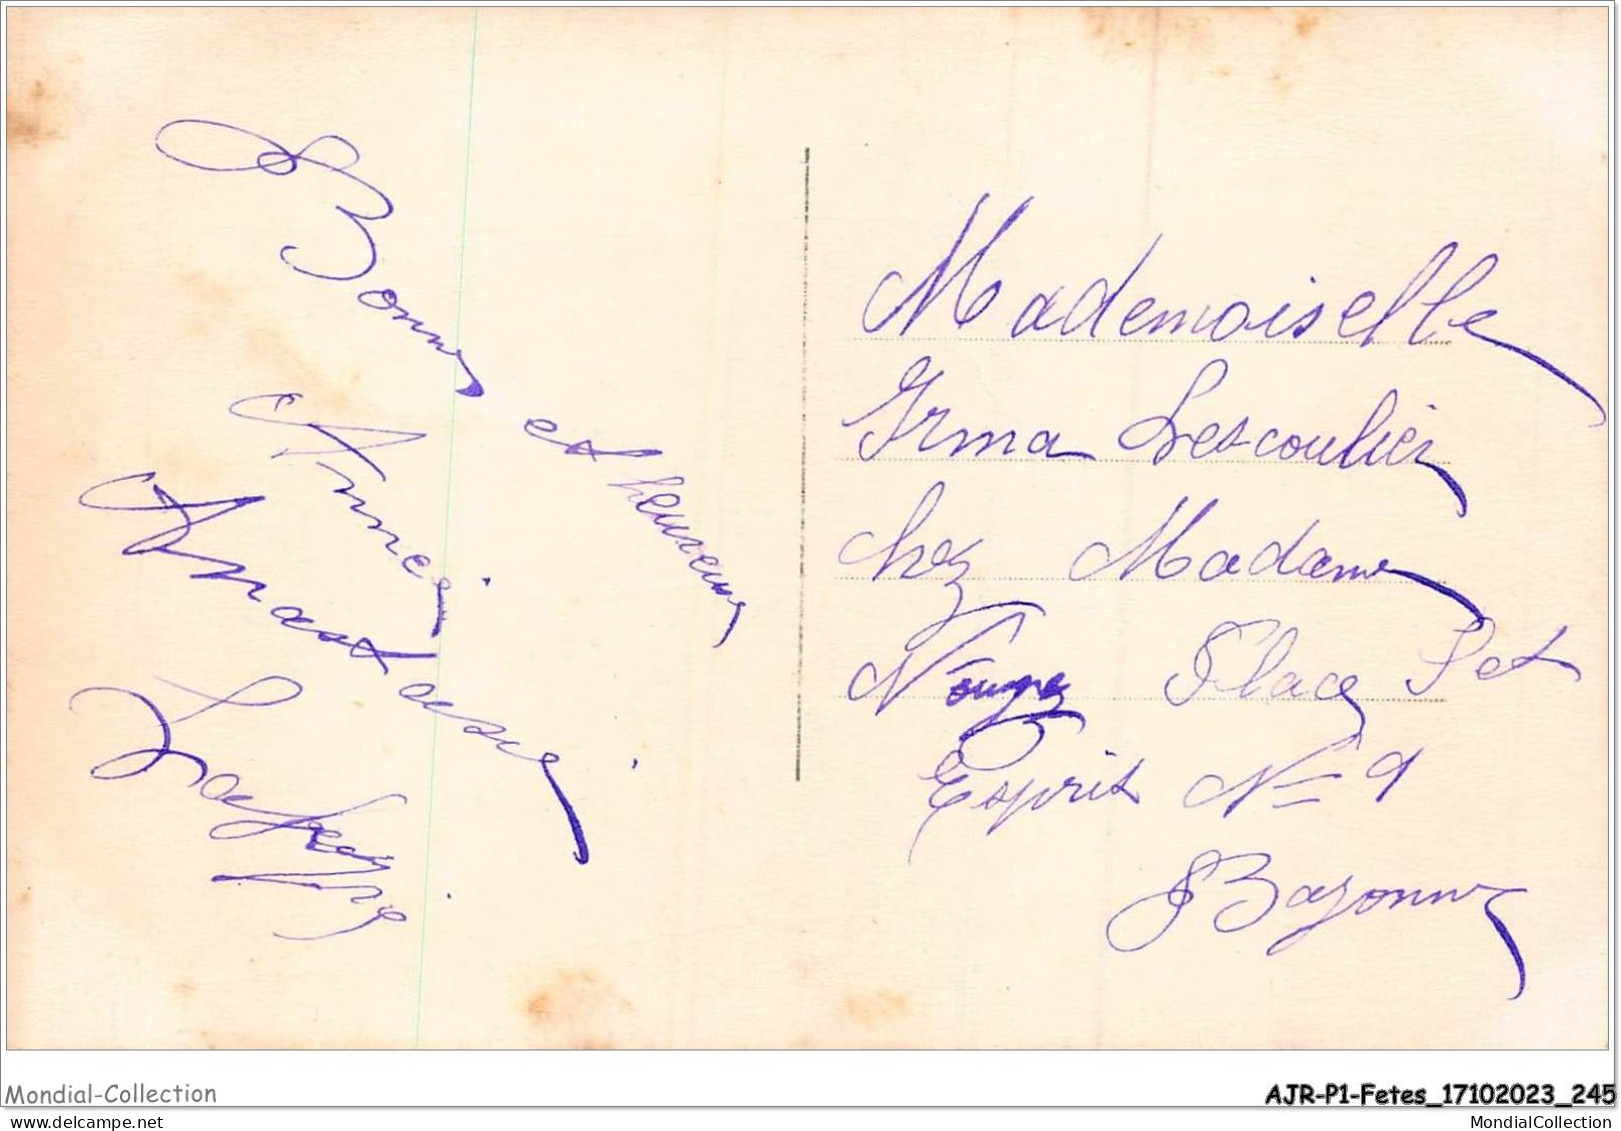 Bonne et heureuse
Année
Anastasie
Mademoiselle
Irma Lescoulier
chez Madame
Place St
Esprit N= 9
Bayonne
Mondial-Collection
AJR-P1-Fetes_17102023_245
www.delcampe.net
MondialCollection